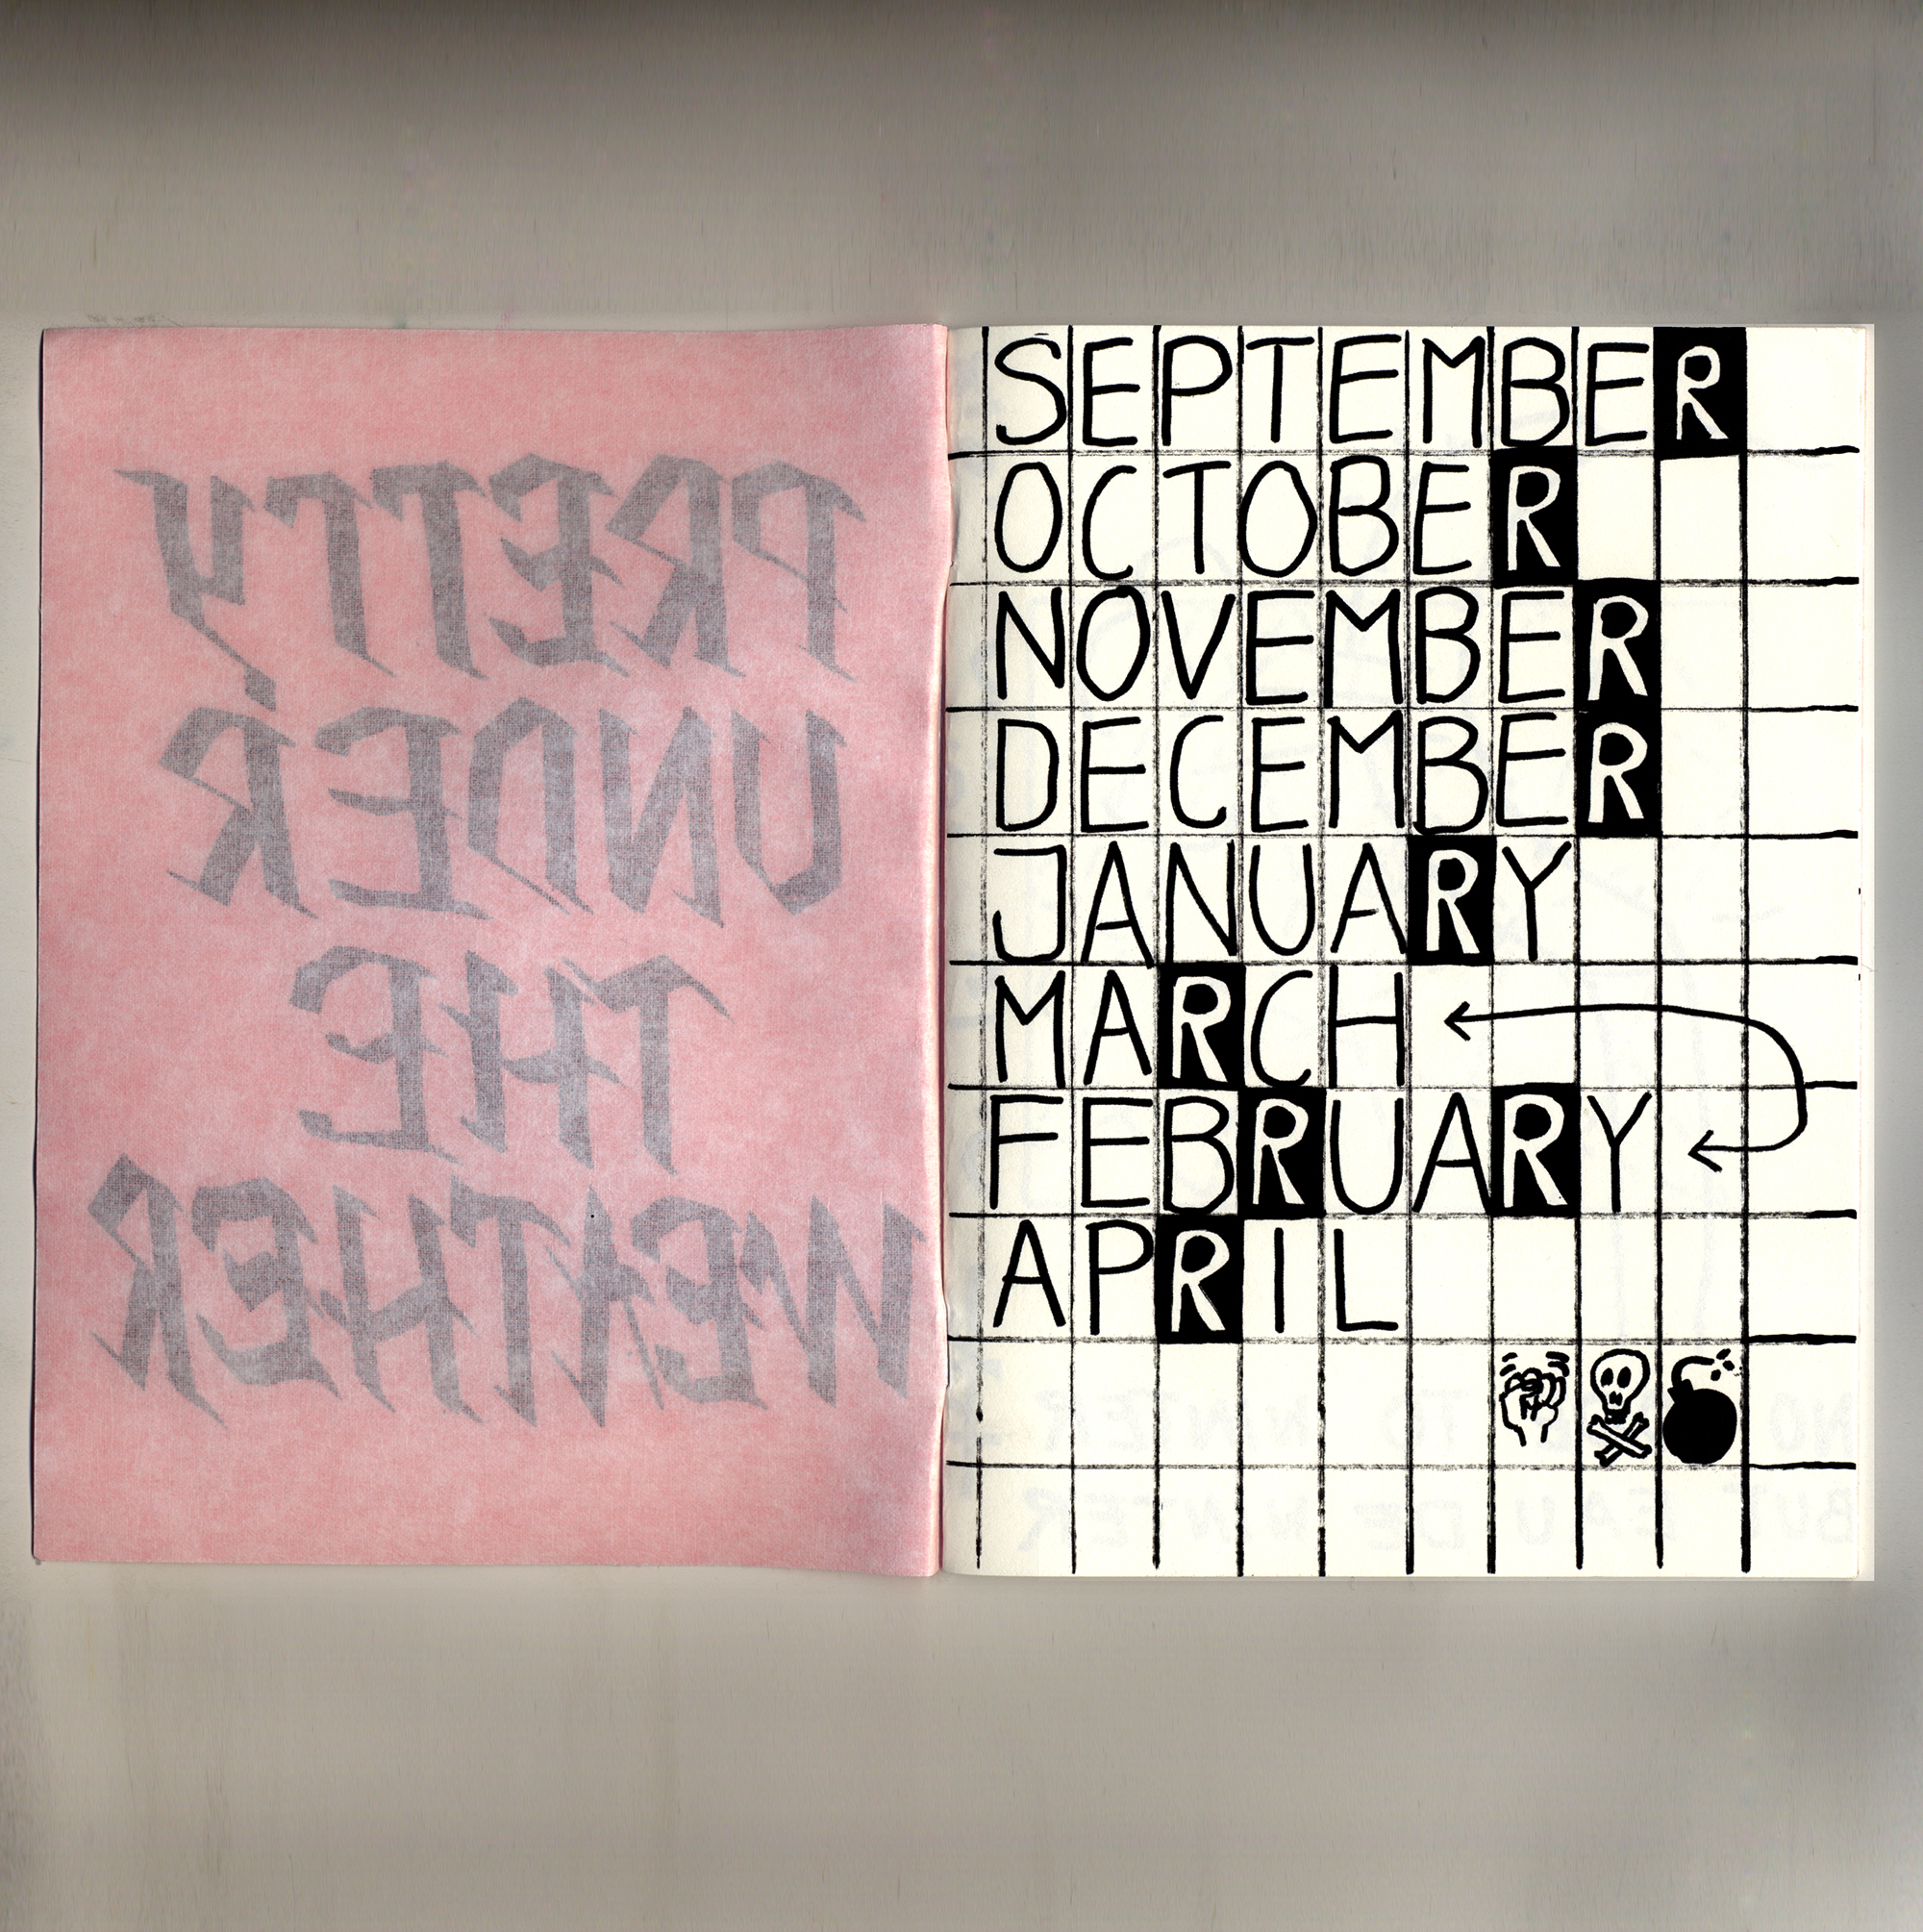 PRETTY
UNDER
THE
WEATHER
SEPTEMBER
OCTOBER
NOVEMBER
DECEMBER
JANUARY
MARCH
FEBRUARY
APRIL